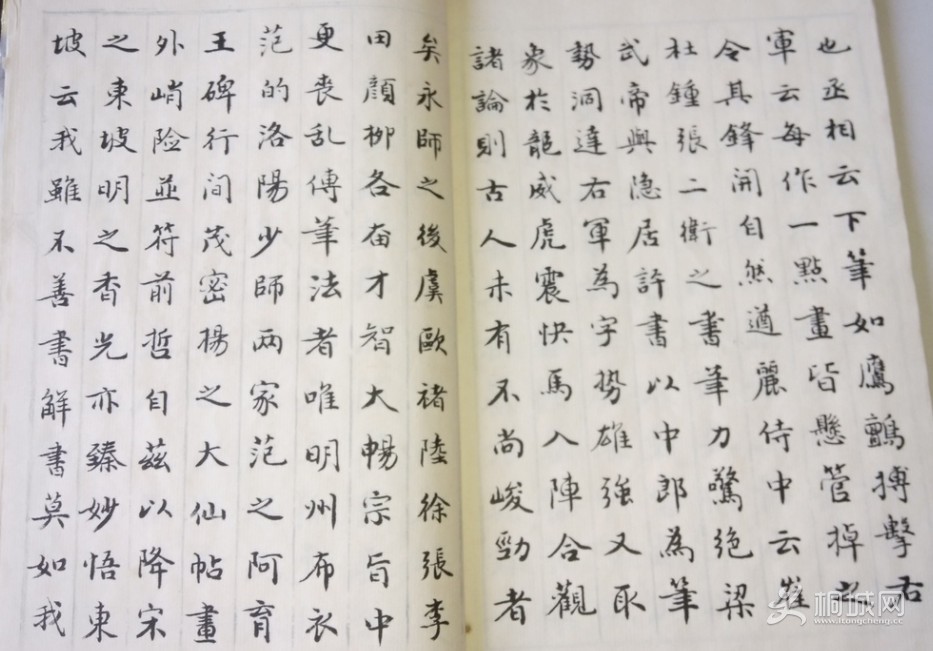 也丞相云下筆如鷹鸇搏擊右
軍云每作一點畫皆懸管掉之
令其鋒開自然遒麗侍中云崔
杜鍾張二衛之書筆力驚絶梁
武帝與隐居評書以中郎為筆
勢洞達右軍為字勢雄強又取
象於龍威虎震快馬入陣合觀
諸論則古人未有不尚峻勁者
矣永師之後虞歐褚陸徐張李
田顏柳各奋才智大暢宗旨中
更喪乱傳筆法者唯明州布衣
范的洛陽少師两家范之阿育
王碑行间茂密楊之大仙帖畫
外峭险並符前哲自兹以降宋
之東坡明之香光亦臻妙悟東
坡云我雖不善書解書莫如我
桐城网
www.itongcheng.cc